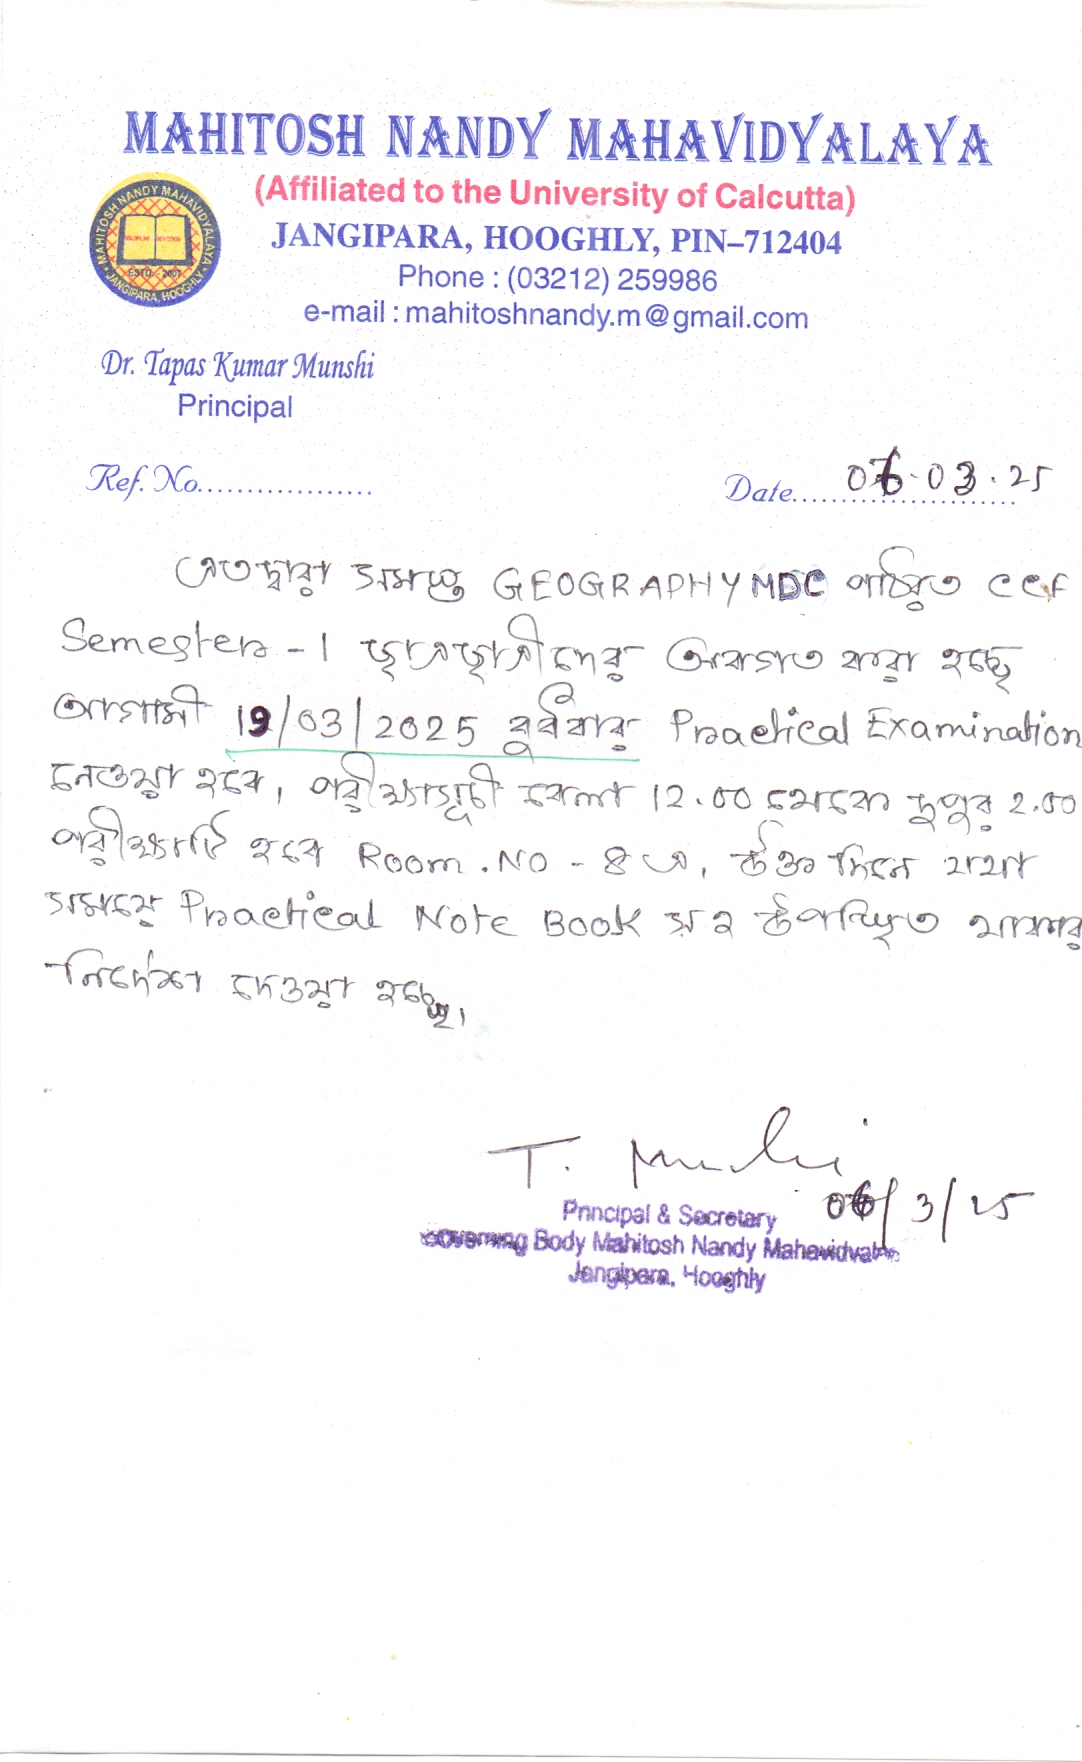 MAHITOSH NANDY MAHAVIDYALAYA
(Affiliated to the University of Calcutta)
JANGIPARA, HOOGHLY, PIN–712404
Phone : (03212) 259986
e-mail : mahitoshnandy.m@gmail.com
MAHITOSH NANDY MAHAVIDYALAYA
ESTD - 2007
JANGIPARA, HOOGHLY
Dr. Tapas Kumar Munshi
Principal
Ref. No..................
Date....................... 06.03.25
এতদ্বারা সমস্ত GEOGRAPHY MDC পঠিত CCF
Semester - I ছাত্রছাত্রীদের অবগত করা হচ্ছে
আগামী 19/03/2025 বুধবার Practical Examination
নেওয়া হবে, পরীক্ষাসূচী বেলা 12.00 থেকে দুপুর 2.00
পরীক্ষাটি হবে Room. No - 8 এ, উক্ত দিনে যথা
সময়ে Practical Note Book সহ উপস্থিত থাকার
নির্দেশ দেওয়া হচ্ছে।
T. Munshi
06/3/25
Principal & Secretary
Governing Body Mahitosh Nandy Mahavidyalaya
Jangipara, Hooghly